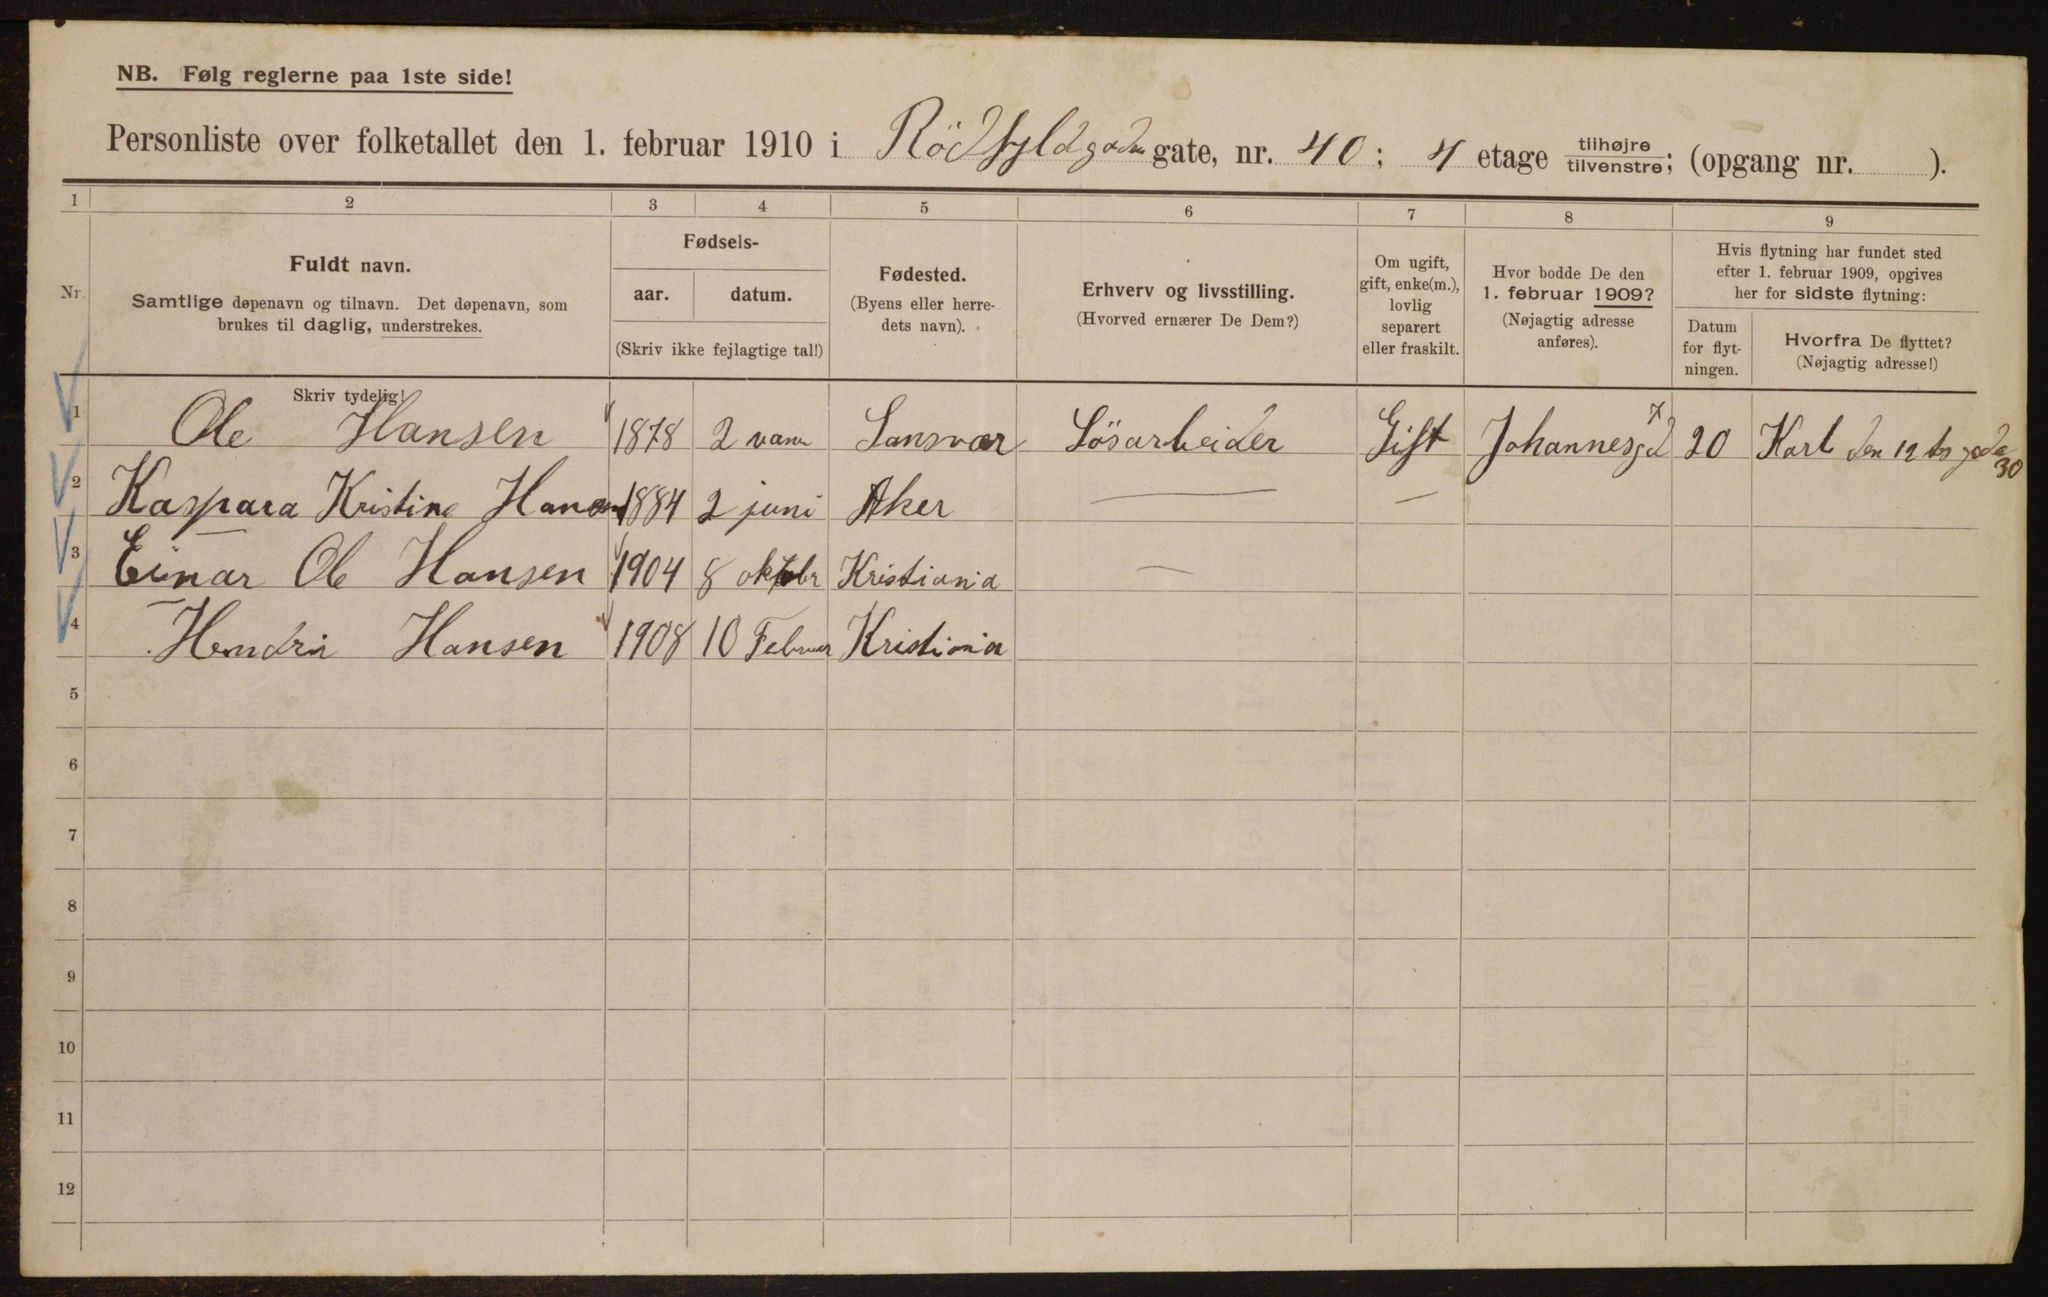 NB. Følg reglerne paa 1ste side!
Personliste over folketallet den 1. februar 1910 i Rödfyldgaden gate, nr. 40; 4 etage tilhøjre / tilvenstre; (opgang nr. ).
1 2 3 4 5 6 7 8 9
Nr.
Fuldt navn.
Samtlige døpenavn og tilnavn. Det døpenavn, som
brukes til daglig, understrekes.
Fødsels-
aar. datum.
(Skriv ikke fejlagtige tal!)
Fødested.
(Byens eller herre-
dets navn).
Erhverv og livsstilling.
(Hvorved ernærer De Dem?)
Om ugift,
gift, enke(m.),
lovlig
separert
eller fraskilt.
Hvor bodde De den
1. februar 1909?
(Nøjagtig adresse
anføres).
Hvis flytning har fundet sted
efter 1. februar 1909, opgives
her for sidste flytning:
Datum
for flyt-
ningen.
Hvorfra De flyttet?
(Nøjagtig adresse!)
Skriv tydelig!
1 Ole Hansen 1878 2 Sansvær Lösarbeider Gift Johannesgd 7 20 Karl den 12 tes gade 30
2 Kaspara Kristine Hansen 1884 2 juni Aker — —
3 Einar Ole Hansen 1904 8 oktobr Kristiania —
4 Hansen 1908 10 Februar Kristiania
5
6
7
8
9
10
11
12